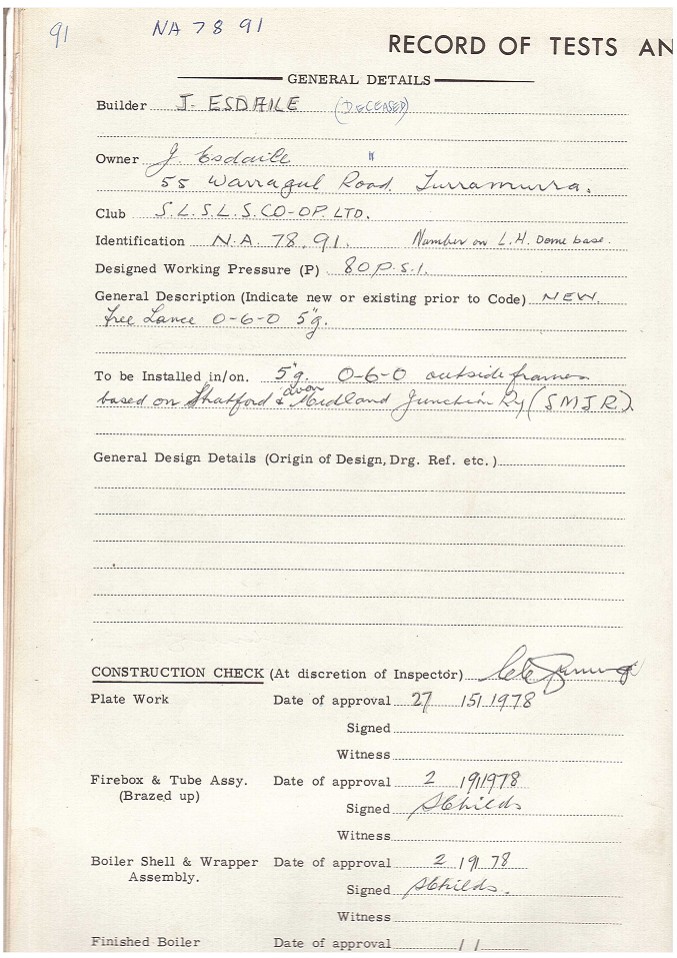 91
NA 78 91
RECORD OF TESTS AN
GENERAL DETAILS
Builder J. ESDAILE (DECEASED)
Owner J. Esdaile "
55 Warragul Road Turramurra.
Club S.L.S.L.S. CO-OP. LTD.
Identification N.A. 78.91. Number on L.H. Dome base.
Designed Working Pressure (P) 80 P.S.I.
General Description (Indicate new or existing prior to Code) NEW
Free Lance 0-6-0 5"g.
To be Installed in/on. 5"g. 0-6-0 outside frames
based on Stratford & avon Midland Junction Ry (SMJR).
General Design Details (Origin of Design, Drg. Ref. etc.)
CONSTRUCTION CHECK (At discretion of Inspector)
Plate Work Date of approval 27 / 5 / 1978
Signed
Witness
Firebox & Tube Assy. Date of approval 2 / 9 / 1978
(Brazed up) Signed S Childs
Witness
Boiler Shell & Wrapper Date of approval 2 / 9 / 78
Assembly. Signed S Childs.
Witness
Finished Boiler Date of approval / /